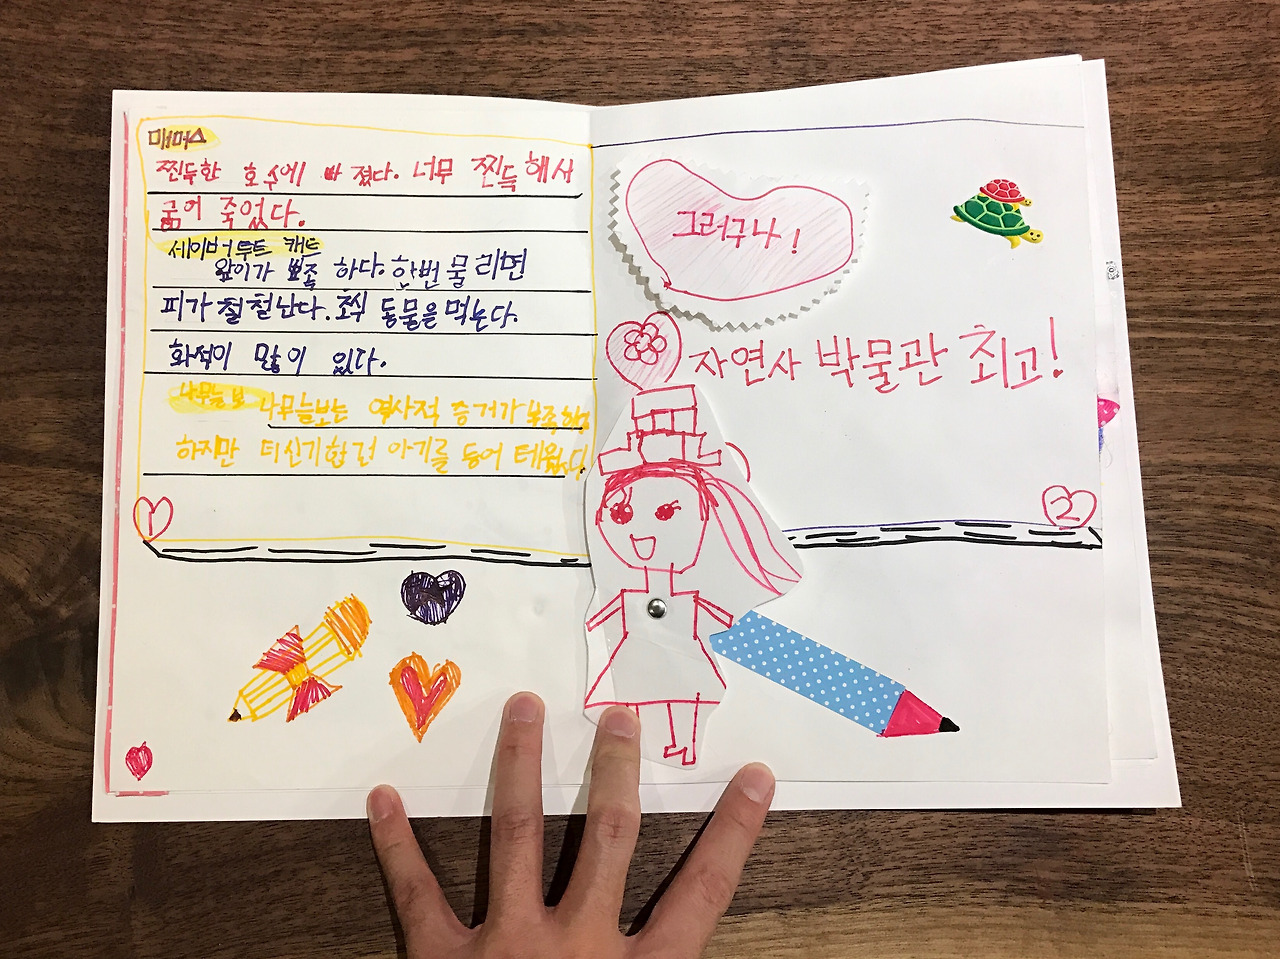 매머스
찐득한 호수에 빠졌다. 너무 찐득해서
굶어 죽었다.
세이버투트 캐트
앞이가 뾰족 하다. 한번 물리면
피가 철철난다. 초식 동물을 먹는다.
화석이 많이 있다.
나무늘보
나무늘보는 역사적 증거가 부족해
하지만 아기를 등어
1
그러구나!
자연사 박물관 최고!
2